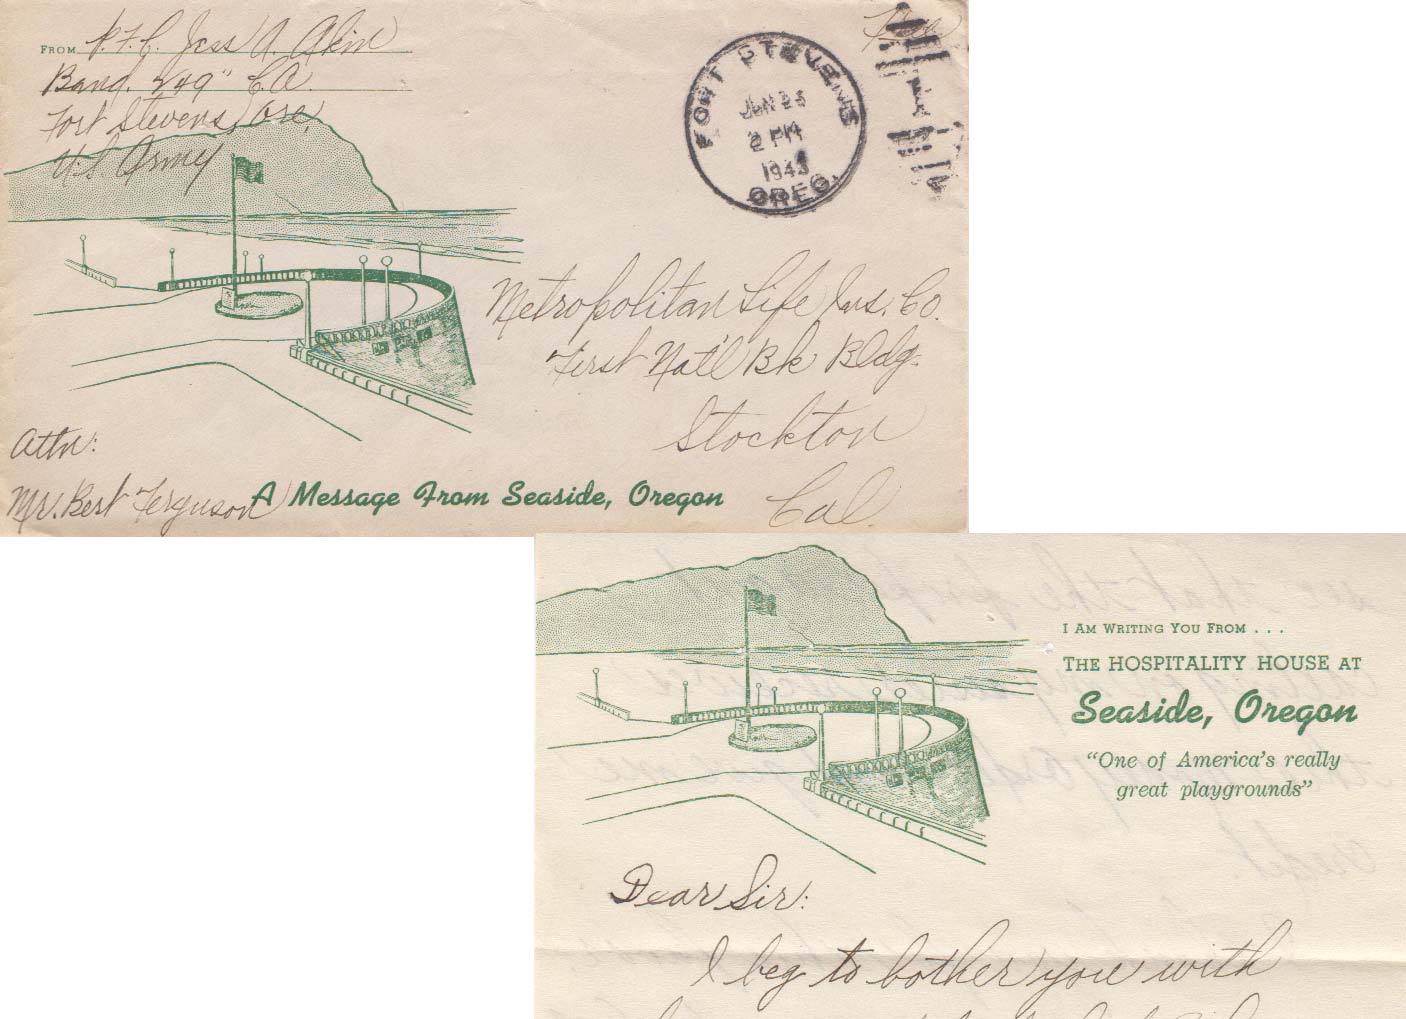 FROM P.F.C. Jess A. Akin
Band. 249" C.A.
Fort Stevens, Ore,
U.S. Army
Free
FORT STEVENS
JUN 23
2 PM
1943
OREG.
Metropolitan Life Ins. Co.
First Nat'l Bk Bldg.
Stockton
Cal.
Attn:
Mr. Bert Ferguson
A Message From Seaside, Oregon
I AM WRITING YOU FROM . . .
THE HOSPITALITY HOUSE AT
Seaside, Oregon
"One of America's really
great playgrounds"
Dear Sir:
I beg to bother you with